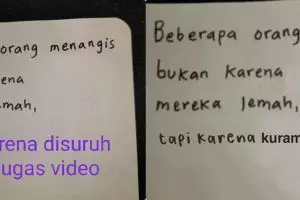 orang menangis
ena
mah,
rena disuruh
ugas video
Beberapa orang
bukan karena
mereka lemah,
tapi karena kuram